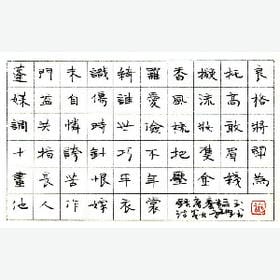 蓬門未識綺羅香擬托良
媒益自傷誰愛風流高格
調共憐時世儉梳妝敢將
十指誇針巧不把雙眉鬥
畫長苦恨年年壓金錢為
他人作嫁衣裳